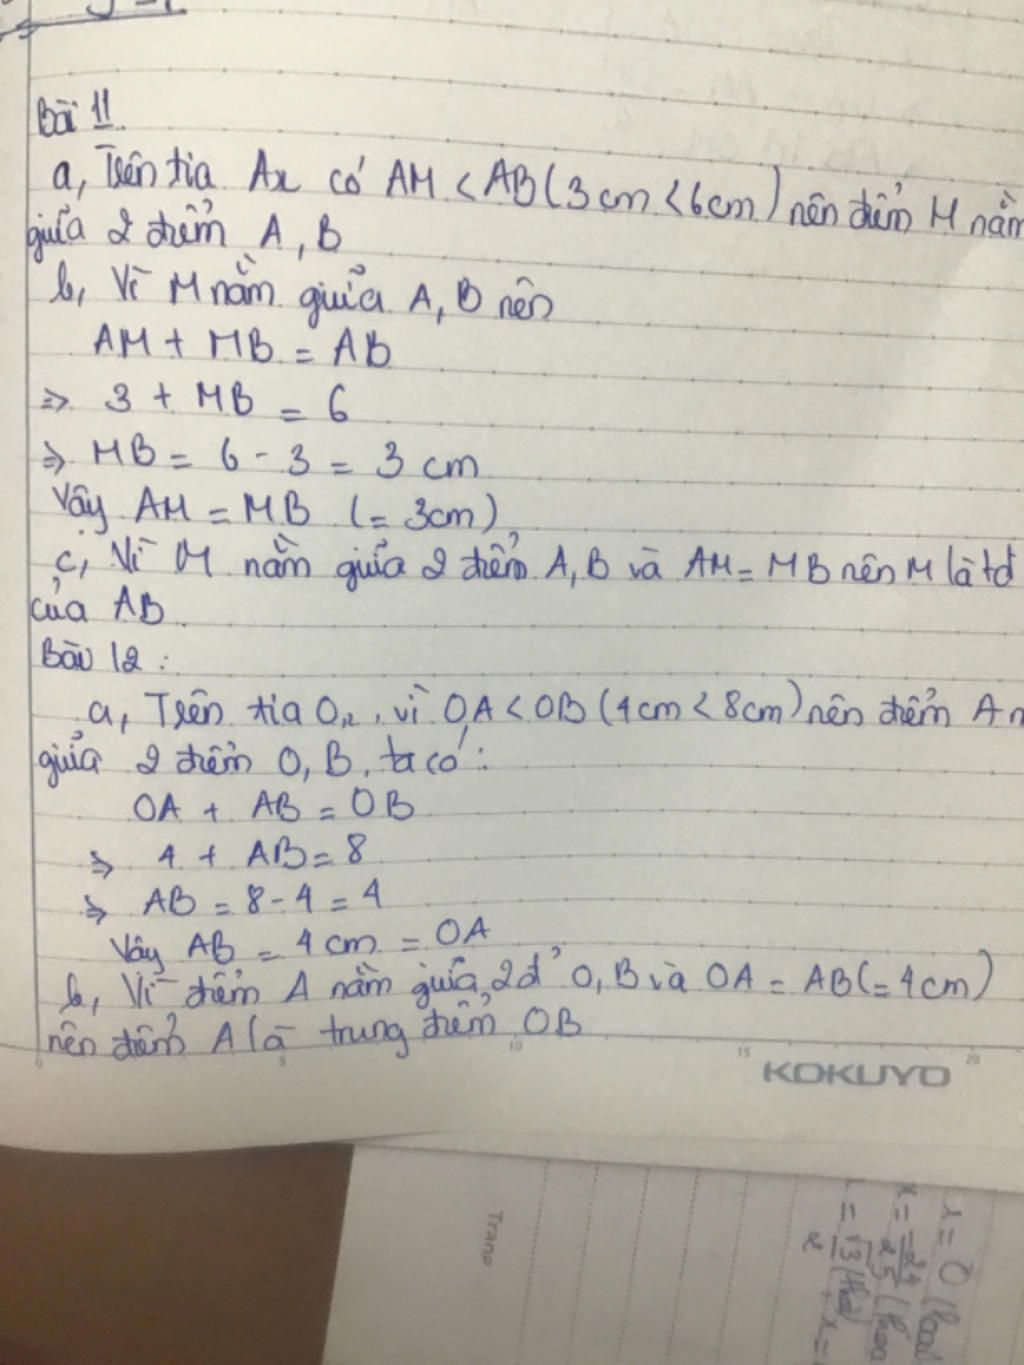 Bài 11
a, Trên tia Ax có AM < AB (3cm < 6cm) nên điểm M nằm
giữa 2 điểm A, B
b, Vì M nằm giữa A, B nên
AM + MB = AB
=> 3 + MB = 6
=> MB = 6 - 3 = 3 cm
Vậy AM = MB (= 3cm)
c, Vì M nằm giữa 2 điểm A, B và AM = MB nên M là tđ
của AB.
Bài 12:
a, Trên tia Ox, vì OA < OB (4cm < 8cm) nên điểm A n
giữa 2 điểm O, B, ta có:
OA + AB = OB
=> 4 + AB = 8
=> AB = 8 - 4 = 4
Vậy AB = 4 cm = OA
b, Vì điểm A nằm giữa 2đ' O, B và OA = AB (= 4cm)
nên điểm A là trung điểm OB
0 5 10 15 20
KOKUYO
Trans